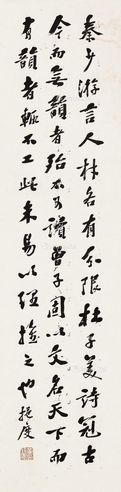 秦少游言人材各有分限杜子美詩冠古
今而無韻者殆不可讀曾子固以文名天下而
有韻者輒不工此未易以理推之也 挺度